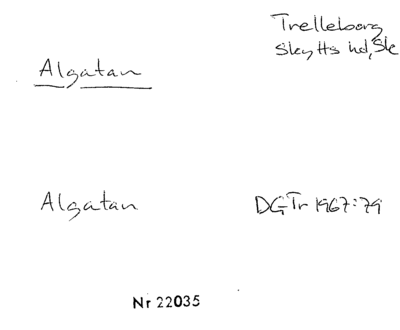 Trelleborg
Skytts hd, Sk
Algatan
Algatan
DGTr 1967:79
Nr 22035